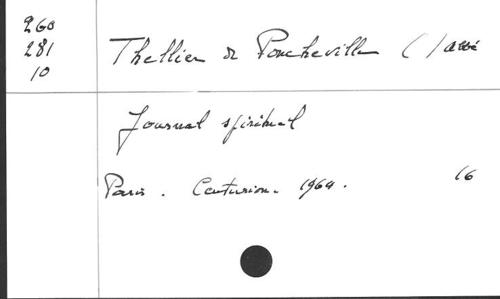 260
281
10
Thellier de Poncheville ( ) abbé
Journal spirituel
Paris. Centurion. 1964. 16